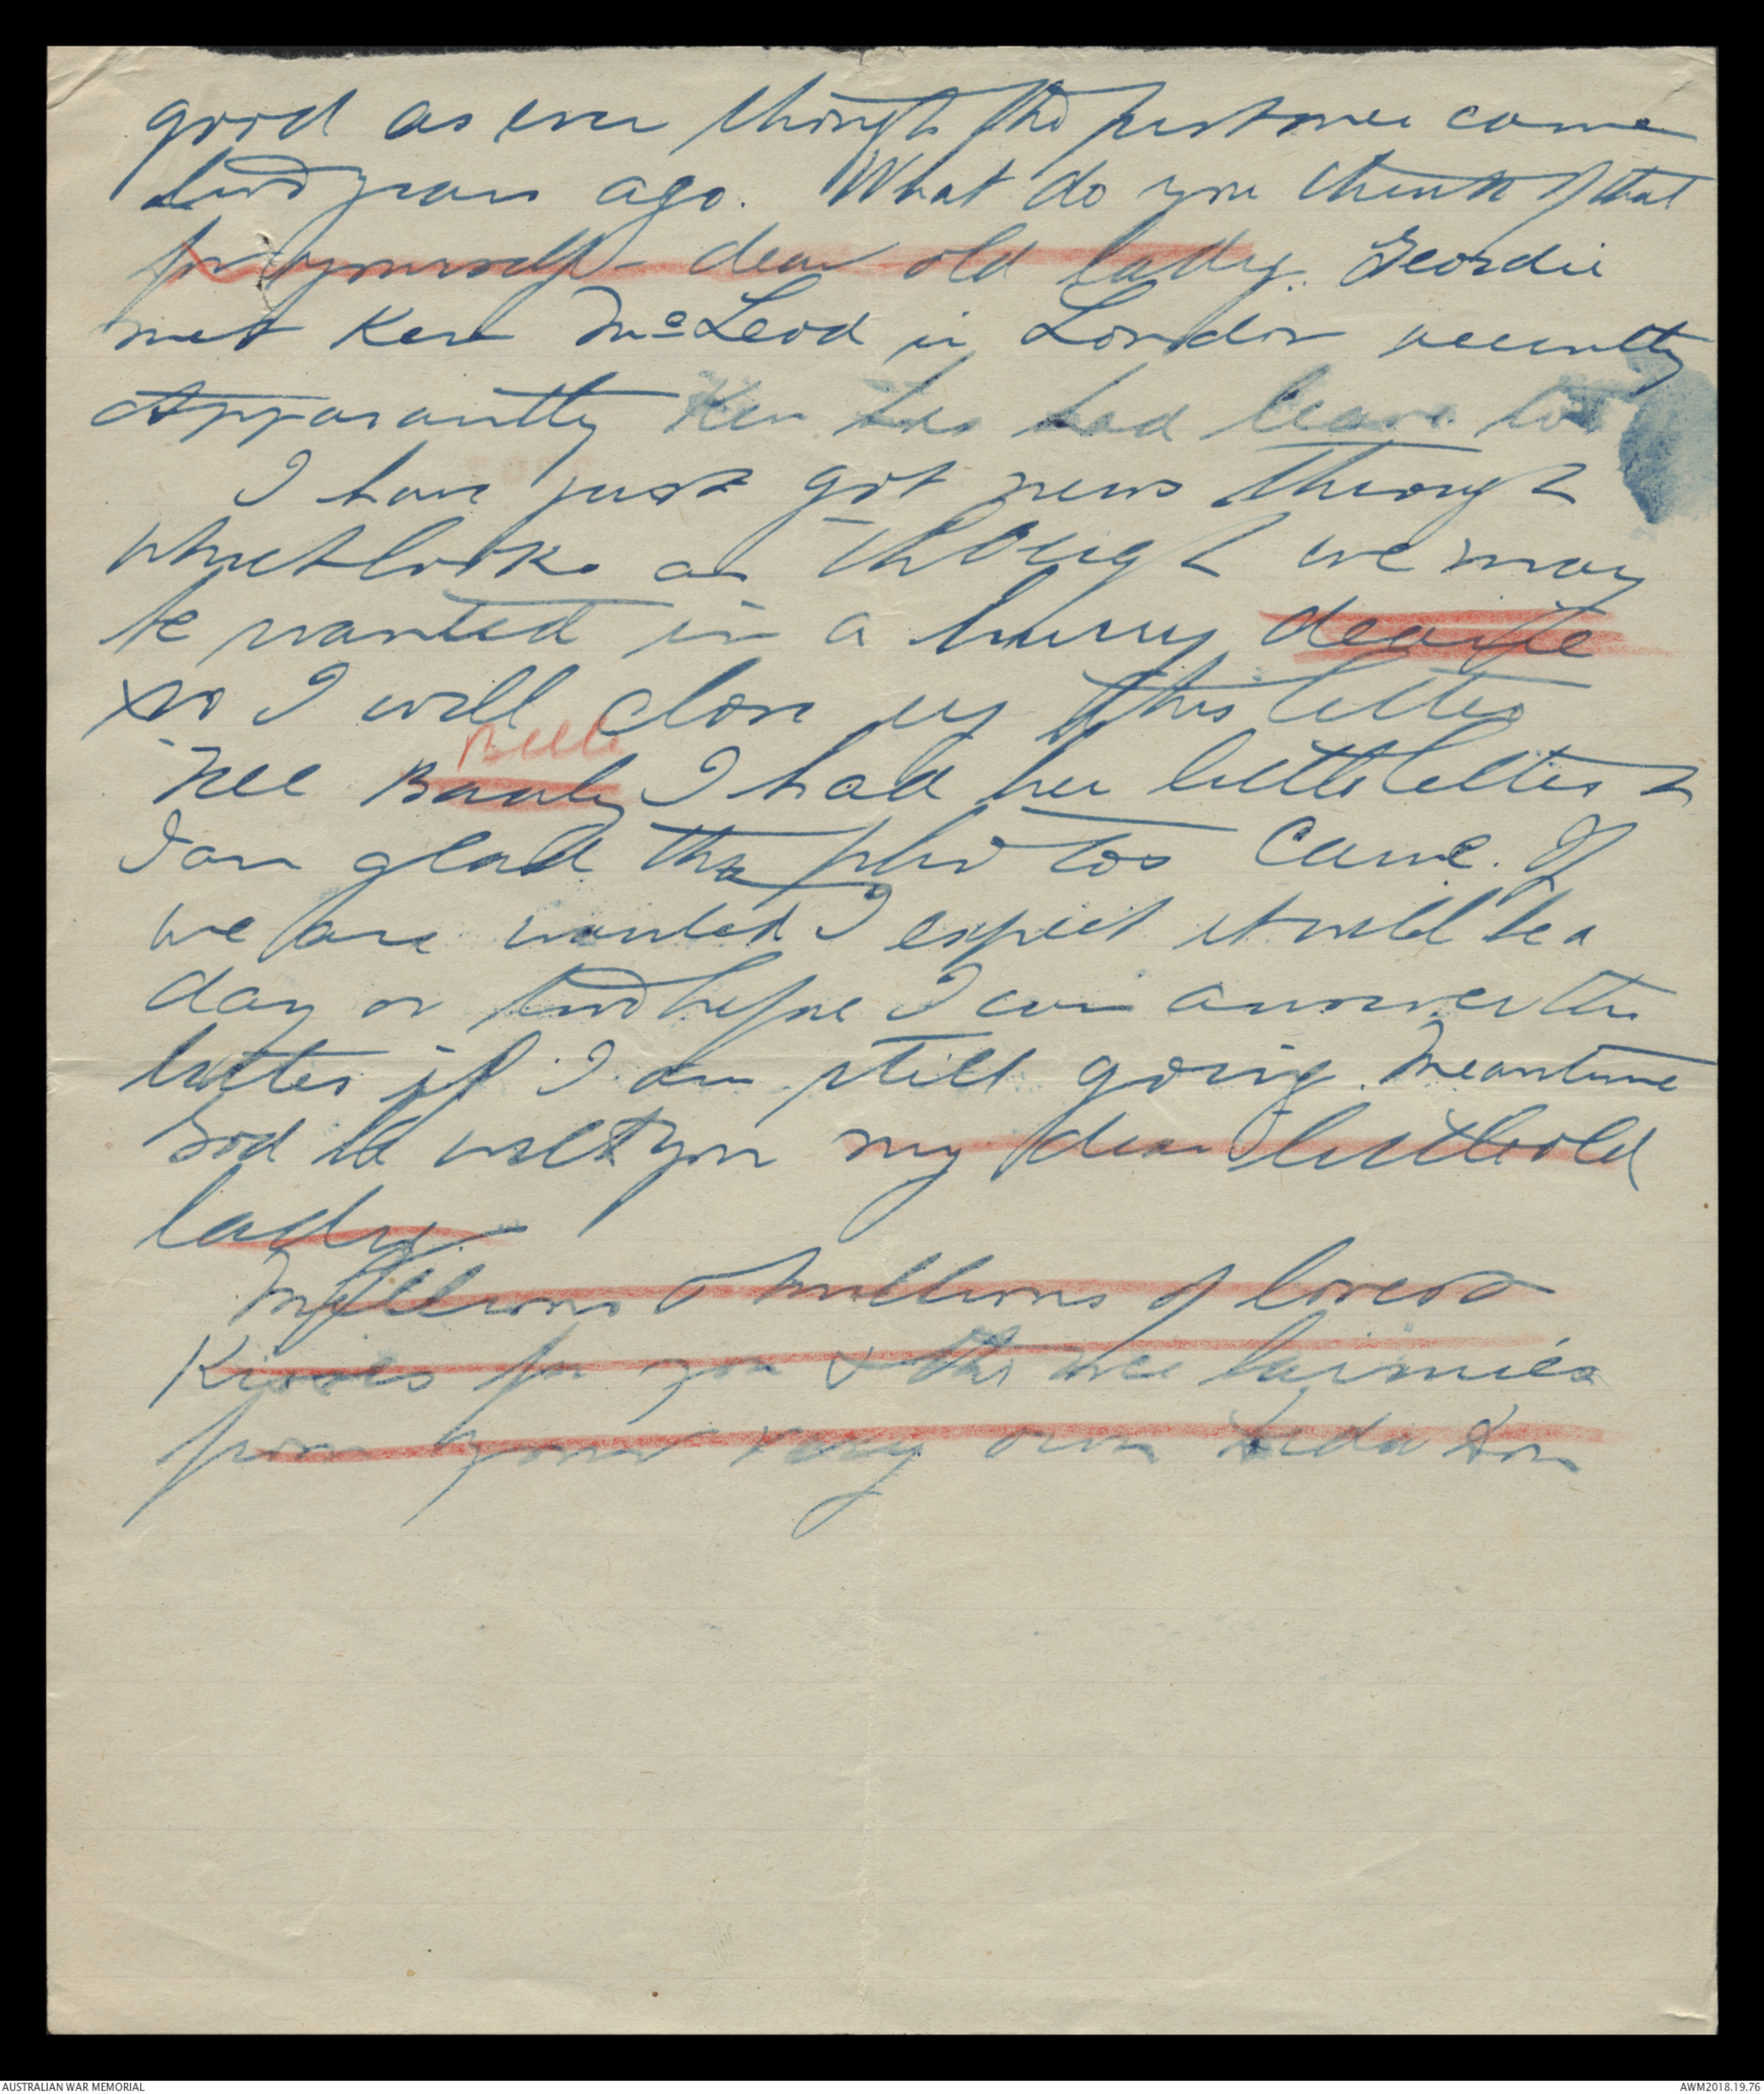 good as ever though the first one came
two years ago. What do you think of that
for yourself dear old lady. Geordie
met Ken McLeod in London recently
Apparantly Ken has had leave too
I have just got news through
which looks as though we may
be wanted in a hurry dearie
so I will close up this letter
Belle
Tell Bauby I had her little letter &
I am glad the photos came. If
we are wanted I expect it will be a
day or two before I can answer the
letter if I am still going. Meantime
God be with you my dear little old
lady.
Millions & millions of love &
Kisses for you & the wee bairnies
from your very own
AUSTRALIAN WAR MEMORIAL
AWM2018.19.76